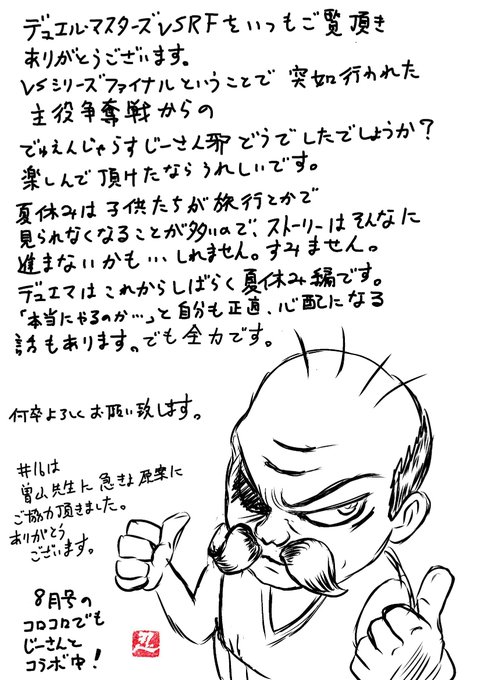 デュエル・マスターズVSRFをいつもご覧頂き
ありがとうございます。
VSシリーズファイナルということで突如行われた
主役争奪戦からの
でゅえんじゃらすじーさん邪どうでしたでしょうか?
楽しんで頂けたならうれしいです。
夏休みは子供たちが旅行とかで
見られなくなることが多いので、ストーリーはそんなに
進まないかも…しれません。すみません。
デュエマはこれからしばらく夏休み編です。
「本当にやるのか…」と自分も正直、心配になる
話もあります。でも全力です。
何卒よろしくお願い致します。
#16は
曽山先生に急きょ原案に
ご協力頂きました。
ありがとう
ございます。
8月号の
コロコロでも
じーさんと
コラボ中!